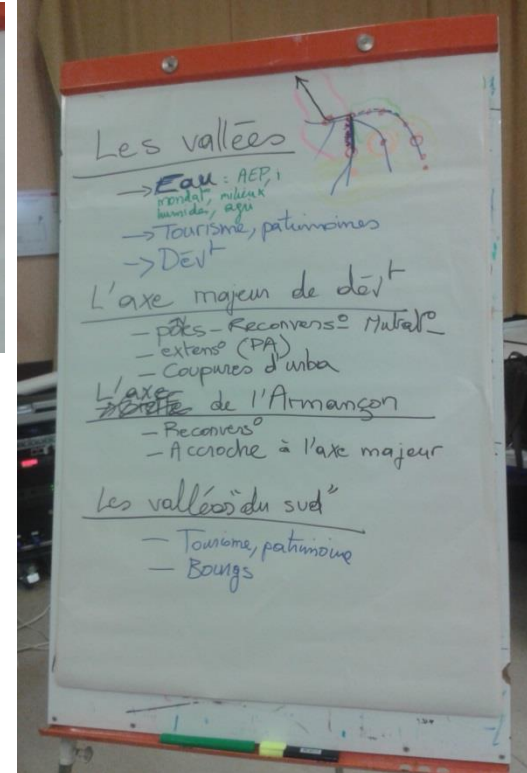 Les vallées
→ Eau : AEP, i
nondat°, milieux
humides, agri
→ Tourisme, patrimoines
→ Dévt
L'axe majeur de dévt
– pôles – Reconvers° Mutat°
– extens° (PA)
– Coupures d'urba
L'axe
de l'Armançon
– Reconvers°
– Accroche à l'axe majeur
Les vallées "du sud"
– Tourisme, patrimoine
– Bourgs